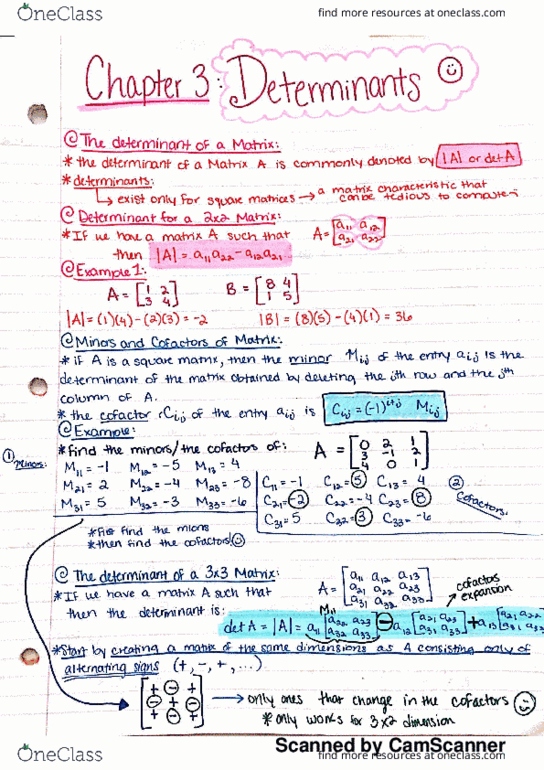 OneClass
find more resources at oneclass.com
Chapter 3: Determinants
The determinant of a Matrix:
* the determinant of a Matrix A is commonly denoted by |A| or det A
* determinants:
↳ exist only for square matrices → a matrix characteristic that can be tedious to compute
Determinant for a 2x2 Matrix:
* If we have a matrix A such that A = [a11 a12
a21 a22]
then |A| = a11a22 - a12a21
Example 1:
A = [1 2
3 4] B = [8 4
1 5]
|A| = (1)(4) - (2)(3) = -2 |B| = (8)(5) - (4)(1) = 36
Minors and Cofactors of Matrix:
* if A is a square matrix, then the minor Mij of the entry aij is the
determinant of the matrix obtained by deleting the ith row and the jth
column of A.
* the cofactor Cij of the entry aij is Cij = (-1)^i+j Mij
Example:
* find the minors/the cofactors of: A = [0 2 1
3 -1 2
4 0 1]
① Minors:
M11 = -1 M12 = -5 M13 = 4
M21 = 2 M22 = -4 M23 = -8
M31 = 5 M32 = -3 M33 = -6
C11 = -1 C12 = 5 C13 = 4
C21 = -2 C22 = -4 C23 = 8
C31 = 5 C32 = 3 C33 = -6
② Cofactors
* find the minors
* then find the cofactors
The determinant of a 3x3 Matrix:
* If we have a matrix A such that A = [a11 a12 a13
a21 a22 a23
a31 a32 a33]
cofactors expansion
then the determinant is:
M11
det A = |A| = a11 |a22 a23
a32 a33| - a13 |a21 a23
a31 a33| + a13 |a21 a22
a31 a33
* Start by creating a matrix of the same dimensions as A consisting only of
alternating signs (+, -, +, ...)
[+ - +
- + -
+ - +] → only ones that change in the cofactors
* only works for 3x2 dimension
Scanned by CamScanner
OneClass
find more resources at oneclass.com